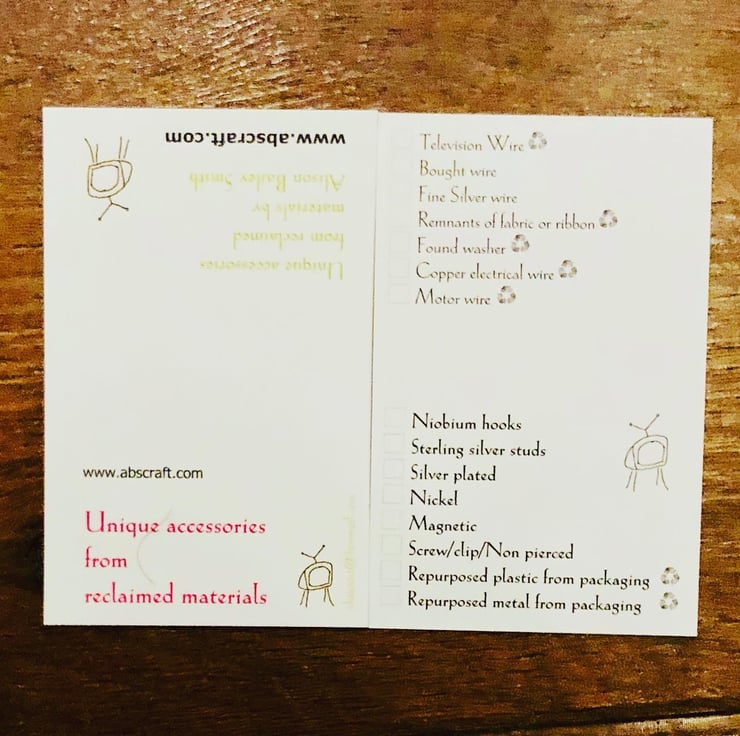 www.abscraft.com
Unique accessories
from reclaimed
materials by
Alison Bailey Smith
www.abscraft.com
Unique accessories
from
reclaimed materials
Television Wire
Bought wire
Fine Silver wire
Remnants of fabric or ribbon
Found washer
Copper electrical wire
Motor wire
Niobium hooks
Sterling silver studs
Silver plated
Nickel
Magnetic
Screw/clip/Non pierced
Repurposed plastic from packaging
Repurposed metal from packaging